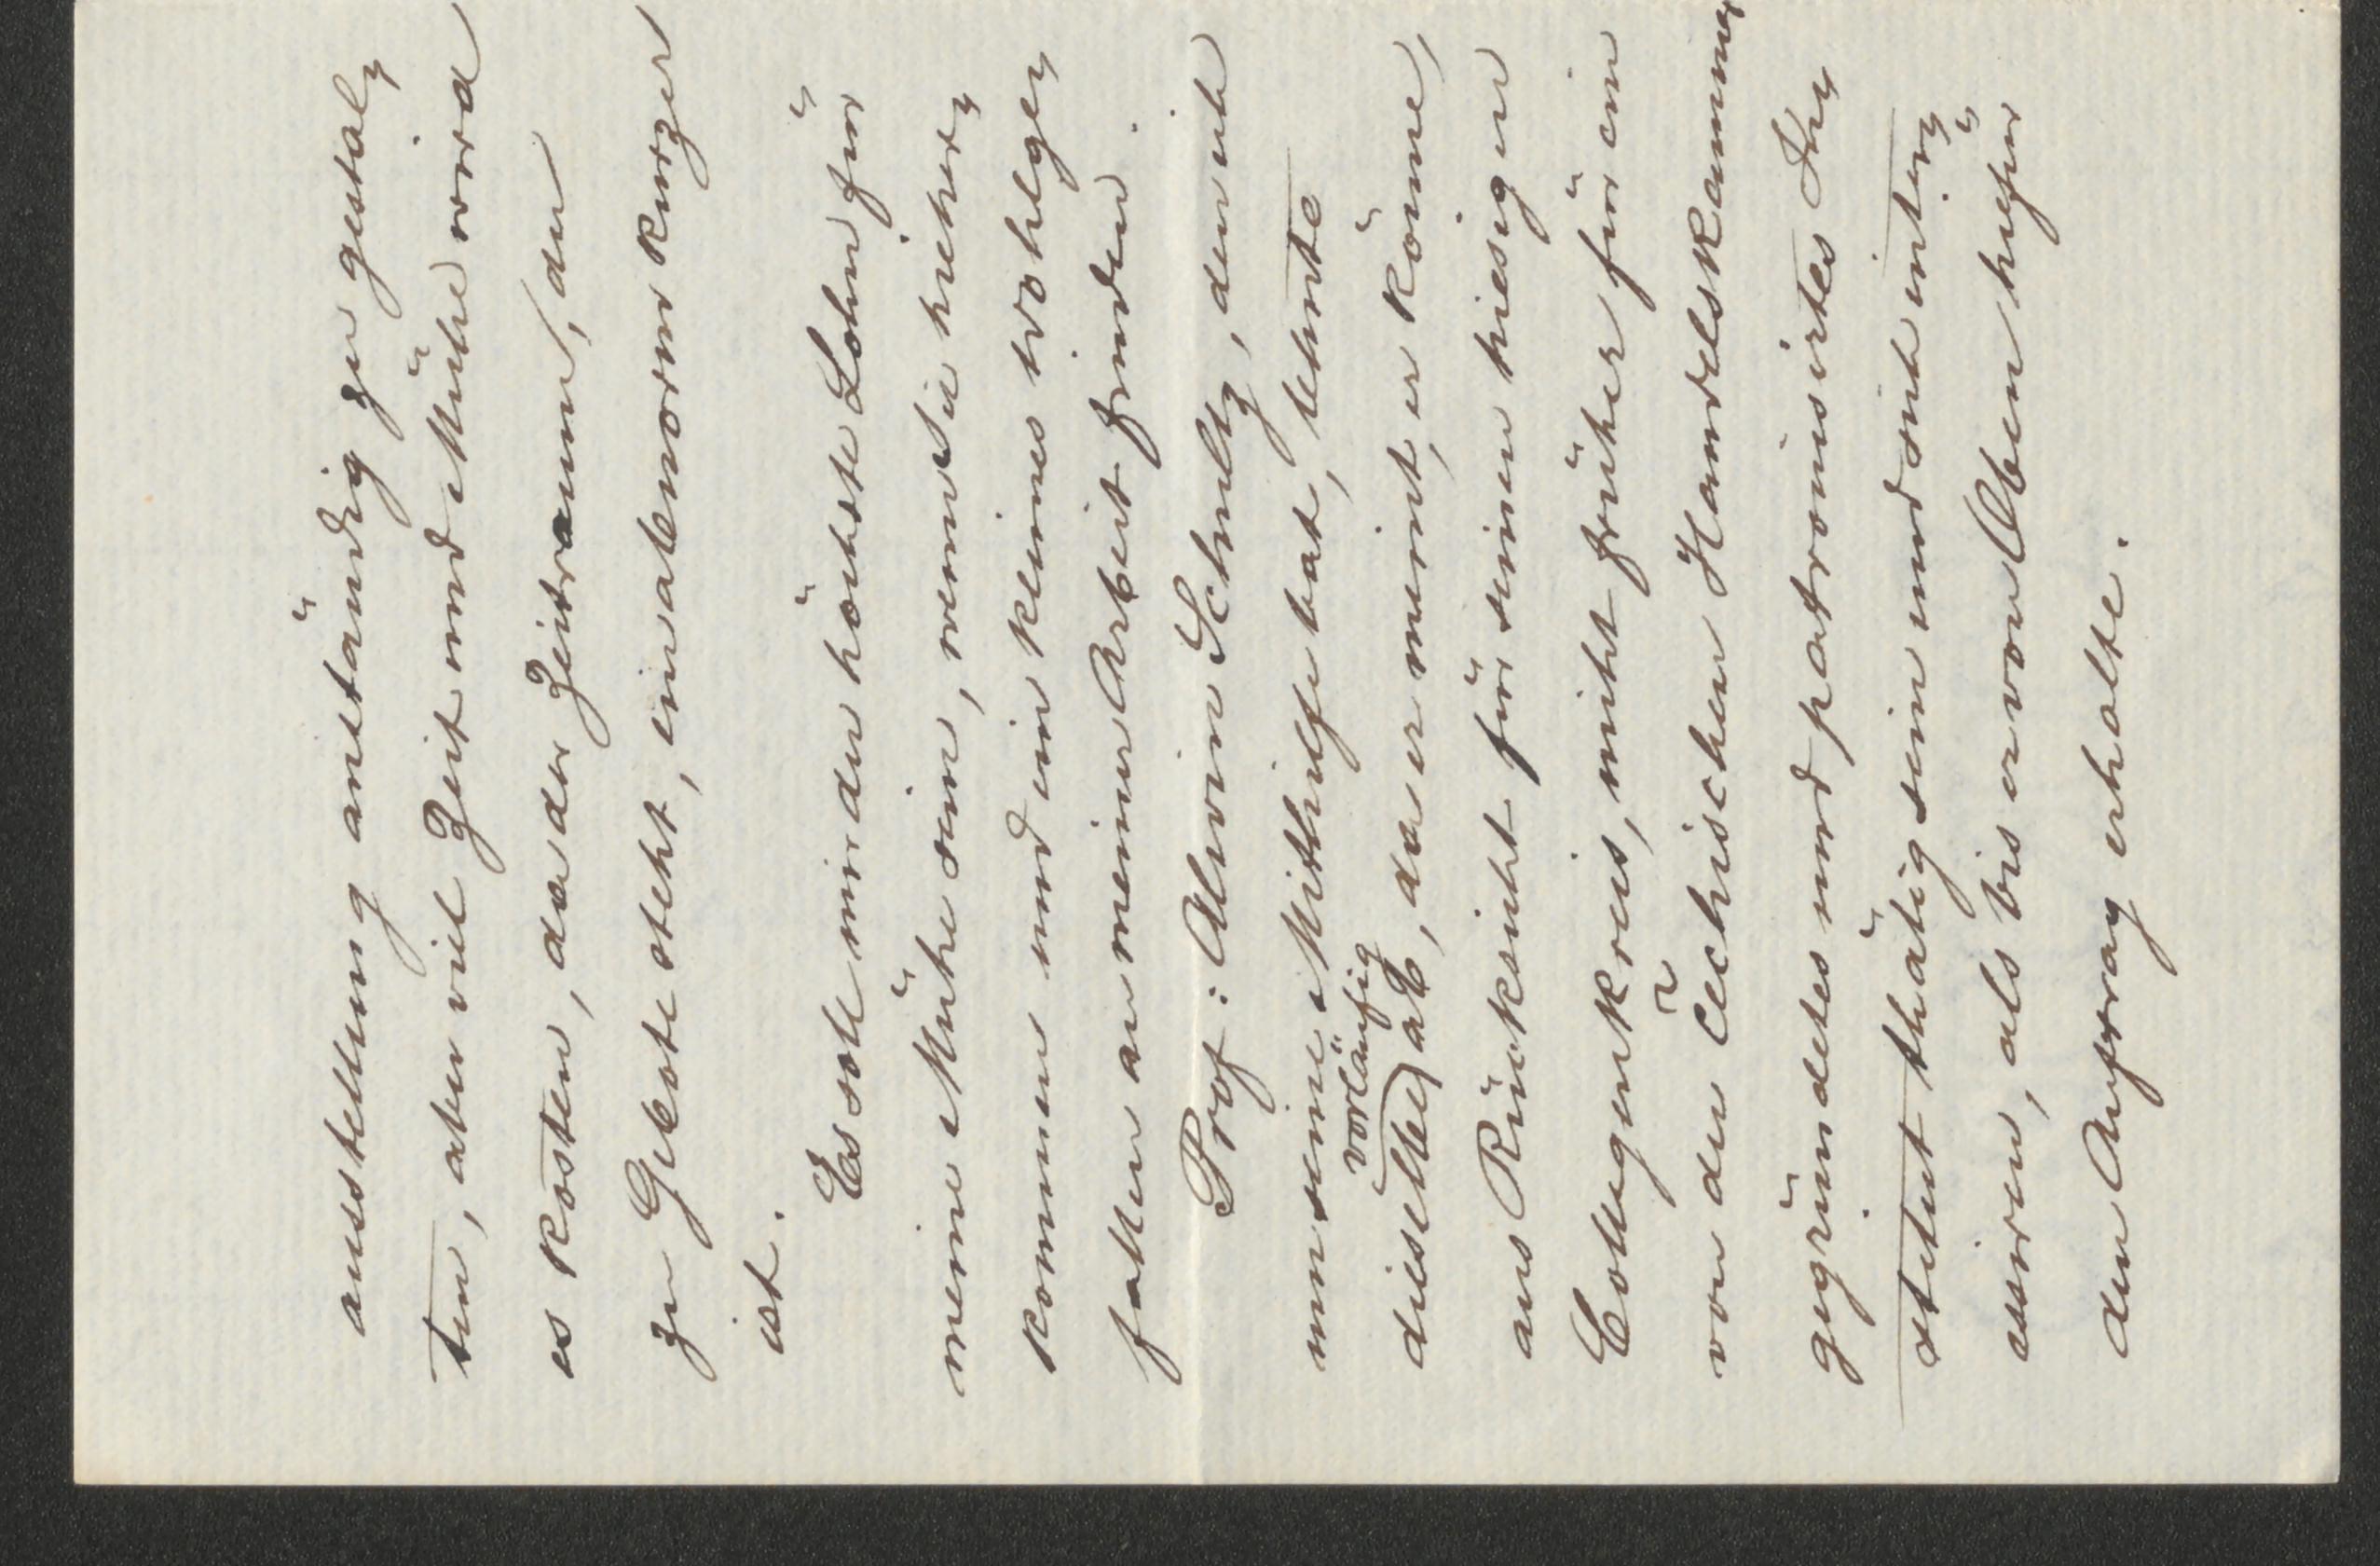 ausstellung anständig zu gestal„
ten, aber viel Zeit und Mühe wird
es kosten, da der Zeitraum, der
zu Gebote steht, ein abenorm kurzer
ist.
Es soll mir der höchste Lohn für
meine Mühe sein, wenn Sie hieher„
kommen und ein kleines Wohlge„
fallen an meiner Arbeit finden.
Prof: Alwin Schultz, den ich
um seine Mithilfe bat, lehnte
vorläufig
dieselbe ab, da er meint, er könne,
aus Rücksicht für seinen hiesigen
Collegenkreis, nicht früher für ein
von der čechischen Handelskammer
gegründetes und patronisirtes In„
stitut thätig sein und sich inter„
essiren, als bis er von Oben hiefür
den Auftrag erhalte.